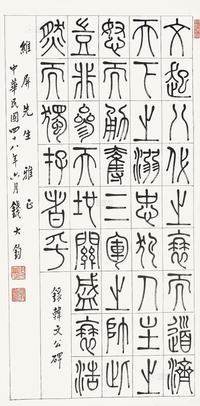 文起八代之衰而道濟
天下之溺忠犯人主之
怒而勇奪三軍之帥此
豈非參天地關盛衰浩
然而獨存者乎
錄韓文公碑
維屏先生雅正
中華民國四十八年六月錢大鈞